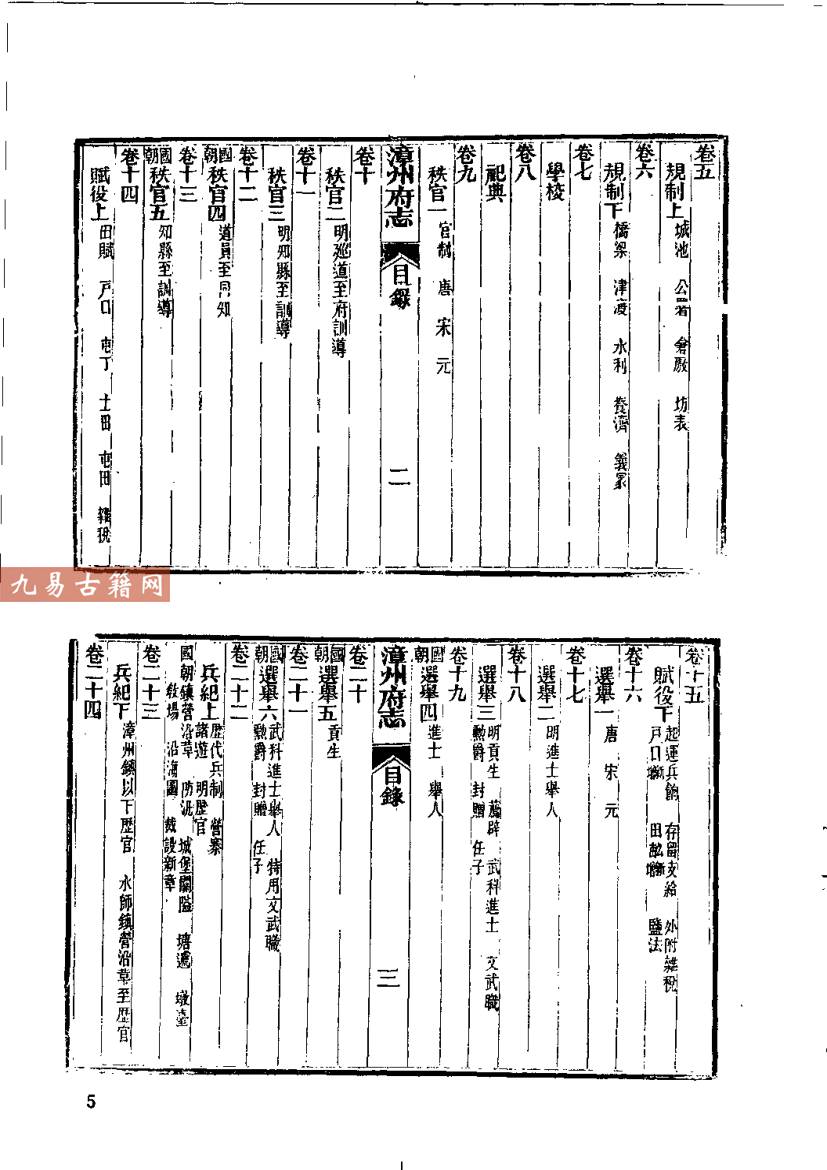 卷五
規制上 城池 公署 倉廒 坊表
卷六
規制下 橋梁 津渡 水利 養濟 義冢
卷七
學校
卷八
祀典
卷九
秩官一 官制 唐 宋 元
漳州府志 目錄 二
卷十
秩官二 明巡道至府訓導
卷十一
秩官三 明知縣至訓導
卷十二
國朝秩官四 道員至同知
卷十三
國朝秩官五 知縣至訓導
卷十四
賦役上 田賦 戶口 屯丁 土田 屯田 雜稅
九易古籍网
卷十五
賦役下 起運兵餉 存留支給 外附雜稅
戶口 田畝 鹽法
卷十六
選舉一 唐 宋 元
卷十七
選舉二 明進士舉人
卷十八
選舉三 明貢生 薦辟 武科進士 文武職
勲爵 封贈 任子
卷十九
國朝選舉四 進士 舉人
漳州府志 目錄 三
卷二十
國朝選舉五 貢生
卷二十一
國朝選舉六 武科進士舉人 特用文武職
勲爵 封贈 任子
卷二十二
兵紀上 歷代兵制 營寨
諸遊 明歷官
國朝鎮營沿革 防汛 城堡關隘 塘遞 墩臺
教場 沿海圖 裁設新章
卷二十三
兵紀下 漳州鎮以下歷官 水師鎮營沿革至歷官
卷二十四
5